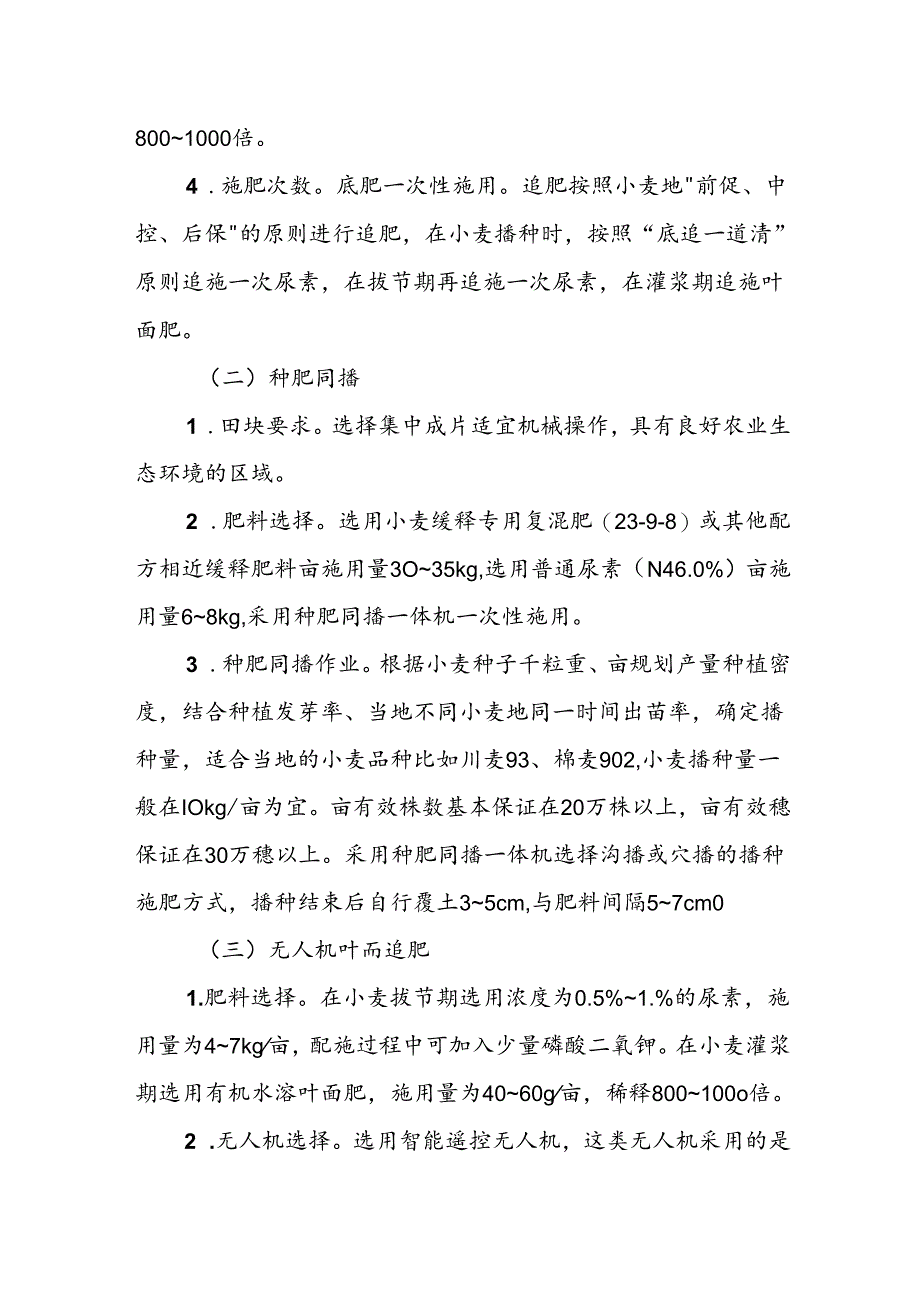 800~1000倍。
4 .施肥次数。底肥一次性施用。追肥按照小麦地"前促、中
控、后保"的原则进行追肥，在小麦播种时，按照“底追一道清”
原则追施一次尿素，在拔节期再追施一次尿素，在灌浆期追施叶
面肥。
（二）种肥同播
1 .田块要求。选择集中成片适宜机械操作，具有良好农业生
态环境的区域。
2 .肥料选择。选用小麦缓释专用复混肥（23-9-8）或其他配
方相近缓释肥料亩施用量3O~35kg,选用普通尿素（N46.0%）亩施
用量6~8kg,采用种肥同播一体机一次性施用。
3 .种肥同播作业。根据小麦种子千粒重、亩规划产量种植密
度，结合种植发芽率、当地不同小麦地同一时间出苗率，确定播
种量，适合当地的小麦品种比如川麦93、棉麦902,小麦播种量一
般在IOkg/亩为宜。亩有效株数基本保证在20万株以上，亩有效穗
保证在30万穗以上。采用种肥同播一体机选择沟播或穴播的播种
施肥方式，播种结束后自行覆土3~5cm,与肥料间隔5~7cm0
（三）无人机叶而追肥
1.肥料选择。在小麦拔节期选用浓度为0.5%~1.%的尿素，施
用量为4~7kg∕亩，配施过程中可加入少量磷酸二氧钾。在小麦灌浆
期选用有机水溶叶面肥，施用量为40~60g∕亩，稀释800~100o倍。
2 .无人机选择。选用智能遥控无人机，这类无人机采用的是